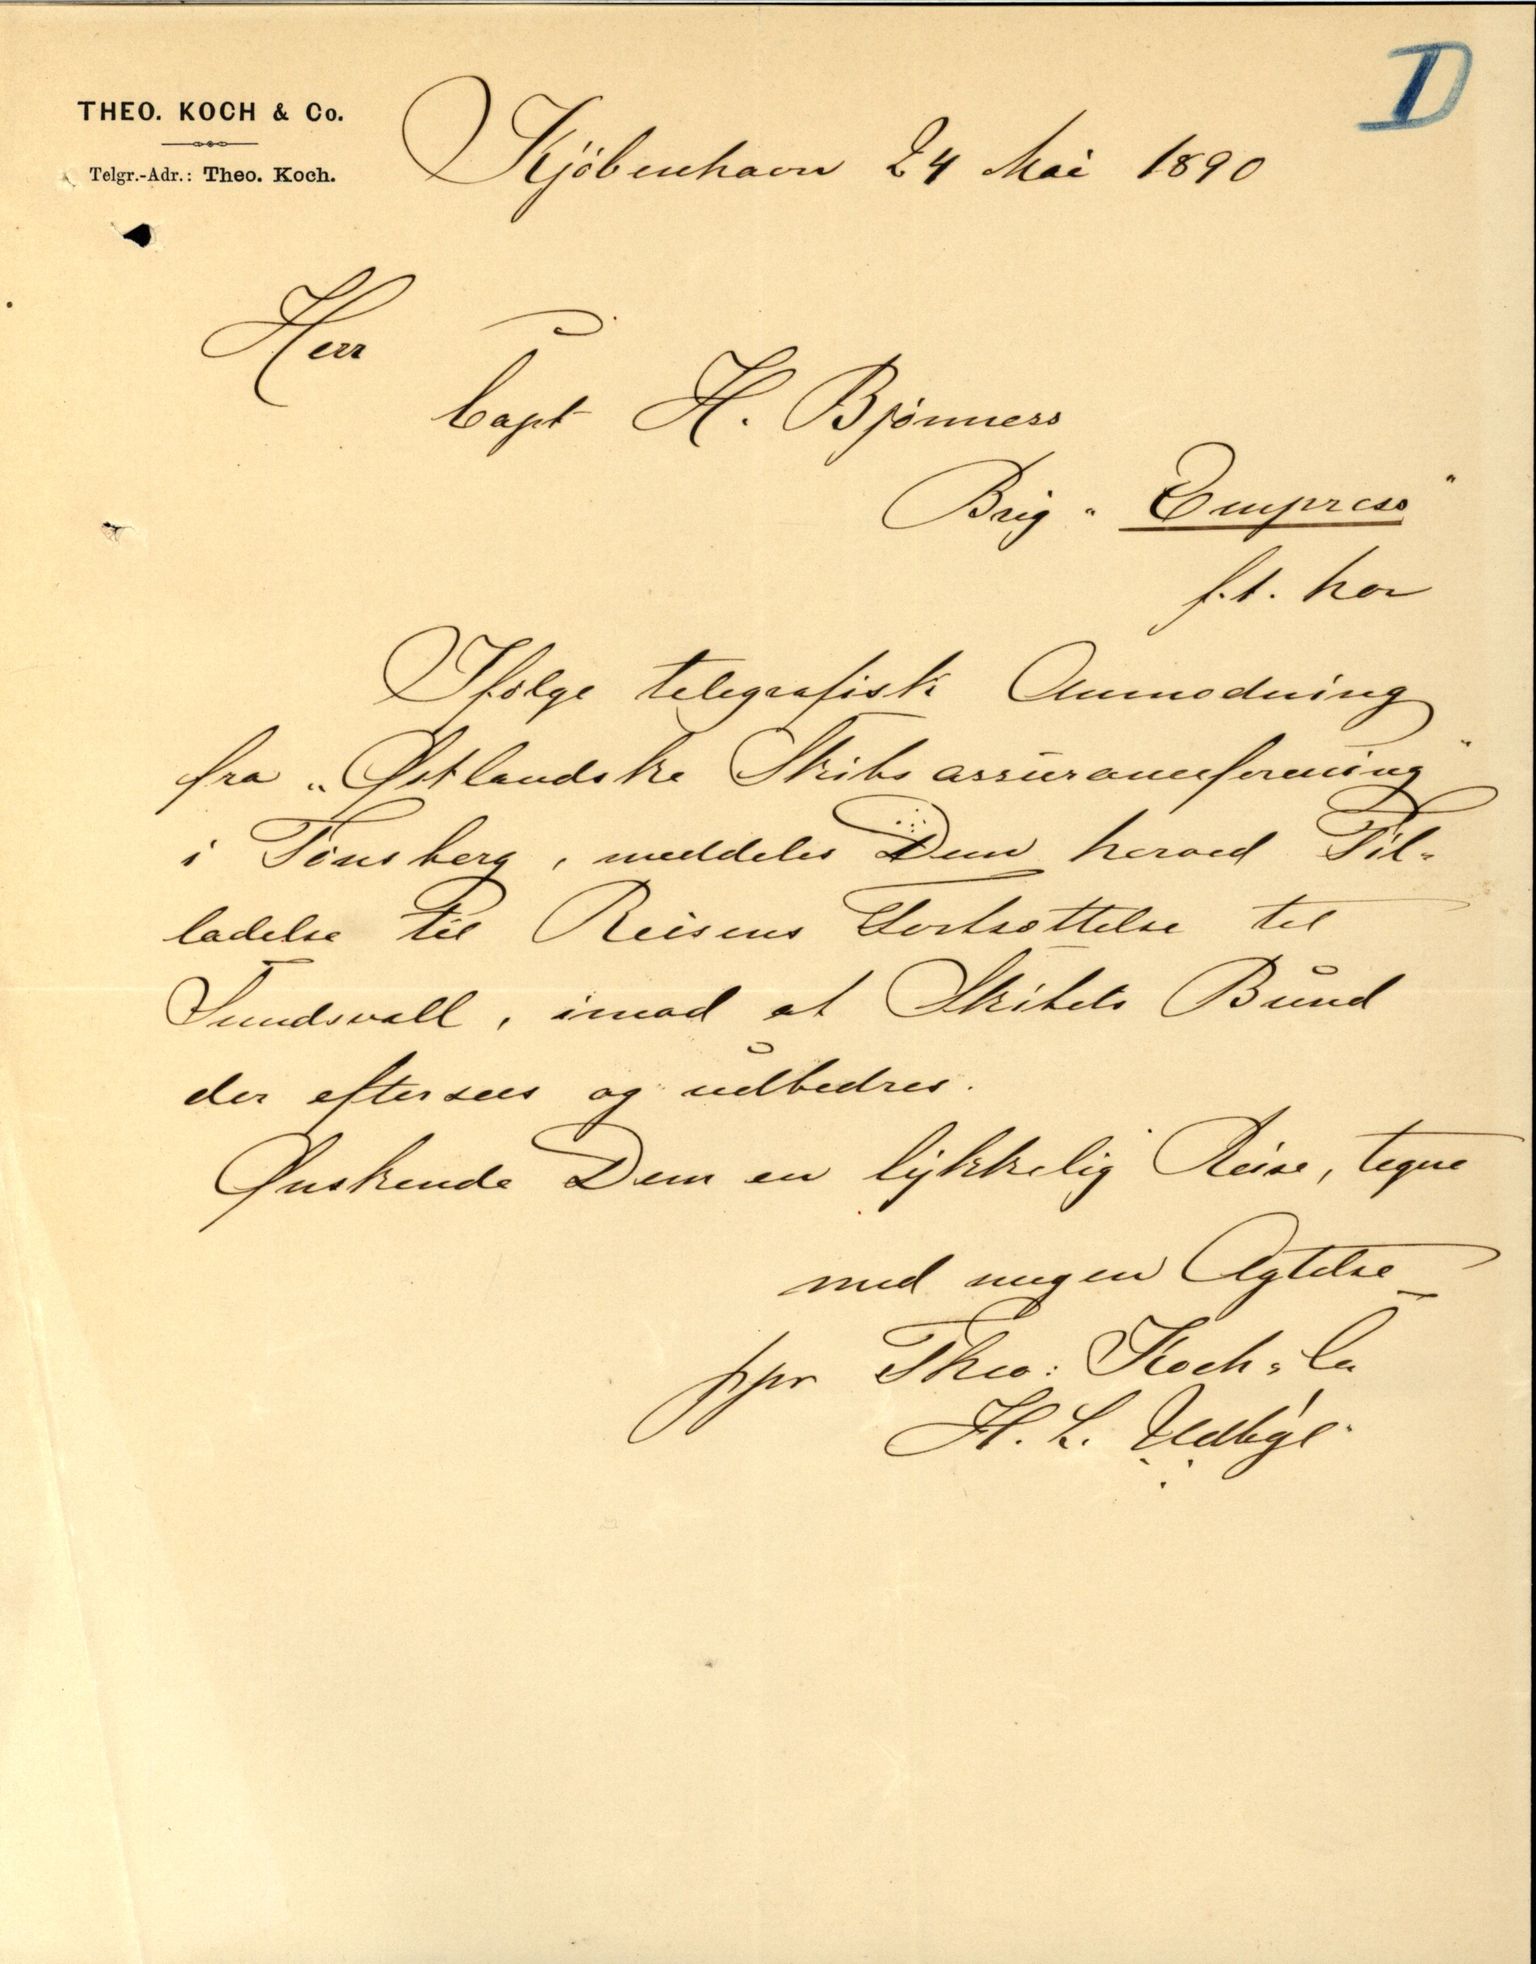 D
THEO. KOCH & Co.
Telgr.-Adr.: Theo. Koch.
Kjöbenhavn 24 Mai 1890
Herr
Capt H. Bjönness
Brig "Empress"
f.t. her
Ifølge telegrafisk Anmodning
fra "Østlandske Skibsassuranceforening"
i Tønsberg, meddeles Dem herved Til-
ladelse til Reisens Fortsættelse til
Sundsvall, imod at Skibets Bund
der eftersees og udbedres.
Ønskende Dem en lykkelig Reise, tegne
med megen Agtelse
ppr Theo: Koch & Co
H. L.